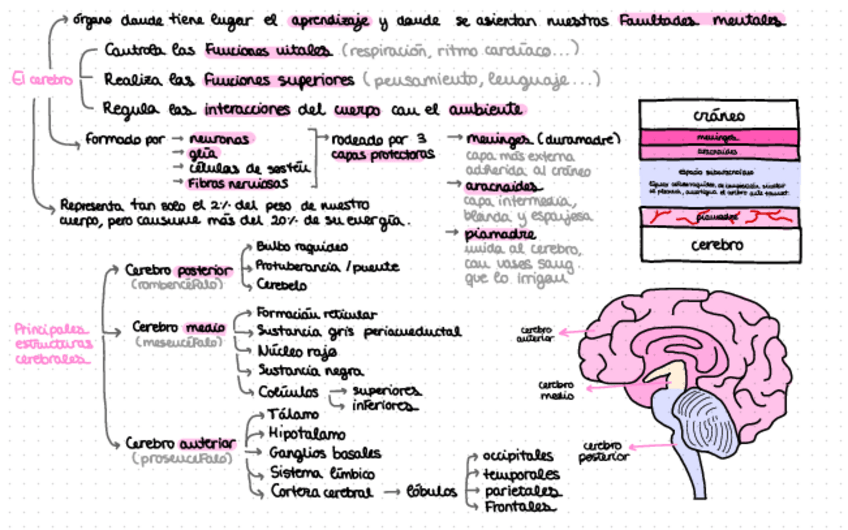 órgano donde tiene lugar el aprendizaje y donde se asientan nuestras facultades mentales
El cerebro
Controla las funciones vitales (respiración, ritmo cardíaco...)
Realiza las funciones superiores (pensamiento, lenguaje...)
Regula las interacciones del cuerpo con el ambiente
formado por
neuronas
glía
células de sostén
fibras nerviosas
rodeado por 3
capas protectoras
meninges (duramadre)
capa más externa
adherida al cráneo
aracnoides
capa intermedia,
blanda y esponjosa
piamadre
unida al cerebro,
con vasos sang.
que lo irrigan
Representa tan solo el 2% del peso de nuestro
cuerpo, pero consume más del 20% de su energía.
cráneo
meninges
aracnoides
espacio subaracnoideo
piamadre
cerebro
Principales
estructuras
cerebrales
Cerebro posterior
(rombencéfalo)
Bulbo raquídeo
Protuberancia / puente
Cerebelo
Cerebro medio
(mesencéfalo)
Formación reticular
Sustancia gris periacueductal
Núcleo rojo
Sustancia negra
Colículos
superiores
inferiores
Cerebro anterior
(prosencéfalo)
Tálamo
Hipotálamo
Ganglios basales
Sistema límbico
Corteza cerebral
lóbulos
occipitales
temporales
parietales
frontales
cerebro
anterior
cerebro
medio
cerebro
posterior